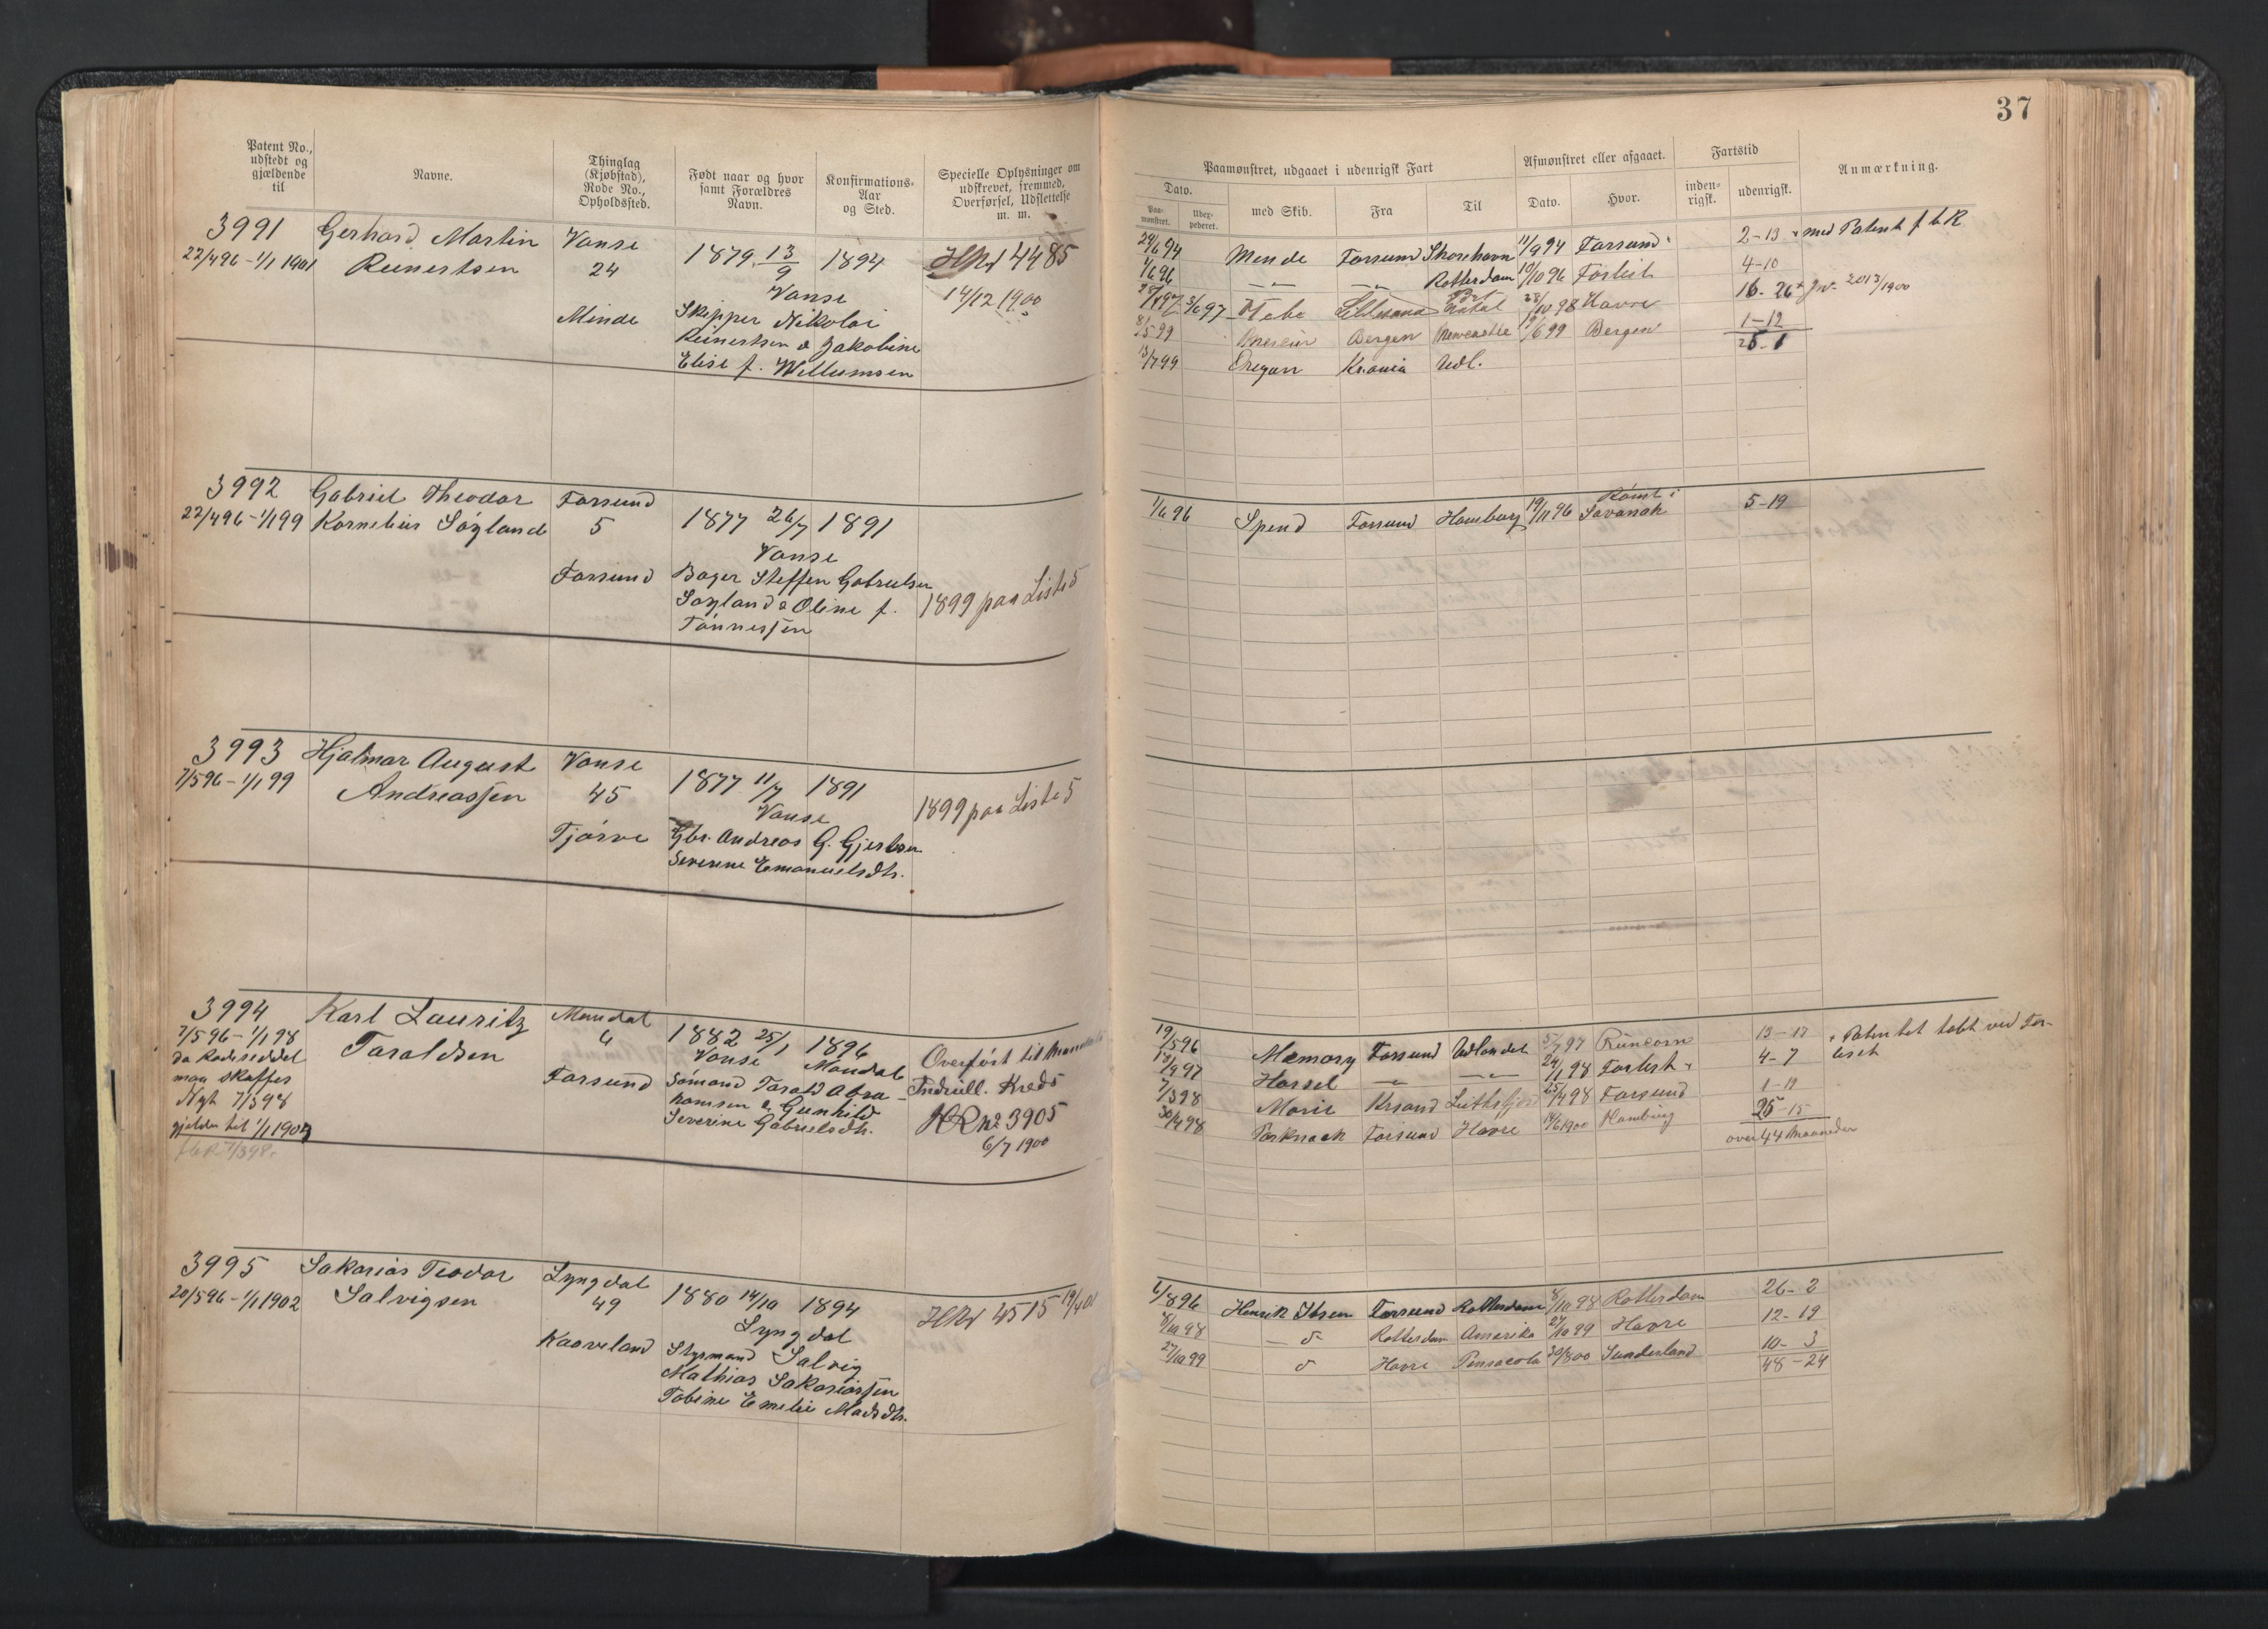 37
Patent No., udstedt og gjældende til
Navne.
Thinglag (Kjøbstad), Rode No., Opholdssted.
Født naar og hvor samt Forældres Navn.
Konfirmations-Aar og Sted.
Specielle Oplysninger om udskrevet, fremmed, Overførsel, Udslettelse m. m.
Paamønstret, udgaaet i udenrigsk Fart
Afmønstret eller afgaaet.
Fartstid
Anmærkning.
Dato.
Paa-mønstret.
Udex-pederet.
med Skib.
Fra
Til
Dato.
Hvor.
inden-rigsk.
udenrigsk.
3991 Gerhard Martin Vanse
22/4 96 - 1/1 1901 Reinertsen 24 1879 13/9 1894 4485
Vanse 14/12 1900
Minde Skipper Nikolai
Reinertsen & Jakobine
Elise f. Willumsen
29/6 94 Mende Farsund 11/9 94 Farsund 2-13 med Patent f b R
1/6 96 Rotterdam 10/10 96 Forlist 4-10
3/6 97 Hebe Lillesand Port Natal 28/10 98 Havre 16-26
Bergen Newcastle 19/6 99 Bergen 1-12
25-1
13/7 99 Oregon Kr.ania Udl.
3992 Gabriel Theodor Farsund
22/4 96 - 1/1 99 Kornelius Søyland 5 1877 26/7 1891
Vanse
Farsund Bager Steffen Gabrielsen
Søyland & Oline f. 1899 paa Liste 5
Tönnessen
1/6 96 Spend Farsund Hamburg 19/11 96 Rømt i Savanah 5-19
3993 Hjalmar August Vanse
7/5 96 - 1/1 99 Andreassen 45 1877 11/7 1891
Vanse 1899 paa Liste 5
Tjörve Gbr. Andreas G. Gjertsen
Severine Emanuelsdtr.
3994 Karl Lauritz Mandal
7/5 96 - 1/1 98 Taraldsen 4 1882 25/1 1896
da Rodeseddel Vanse Mandal Overført til Mandals
maa skaffes Farsund Sömand Tarald Abra- Indrull. Kreds
Nyt 7/3 98 hamsen & Gunhild
gjelder til 1/1 1904 Severine Gabrielsdtr. HR No 3905
6/7 1900
19/5 96 Memory Farsund Udlandet 97 Runcorn 13-17 Patentet tabt ved For-
97 Hassel 24/1 98 Forlist 4-7 liset
7/3 98 Marie Krsand 25/4 98 Farsund 1-19
30/4 98 Farsund Havre 14/6 1900 Hamburg 25-15
over 44 Maaneder
3995 Sakarias Teodor Lyngdal
20/5 96 - 1/1 1902 Salvigsen 49 1880 14/10 1894 4515 19/4 01
Lyngdal
Kaaveland Styrmand Salvig
Mathias Sakariassen
Tobine Emelie Madsdtr.
6/8 96 Henrik Ibsen Farsund Rotterdam 8/10 98 Rotterdam 26-2
8/10 98 Rotterdam Amerika 27/10 99 Havre 12-19
27/10 99 Havre Pensacola 30/8 00 Sunderland 10-3
48-24